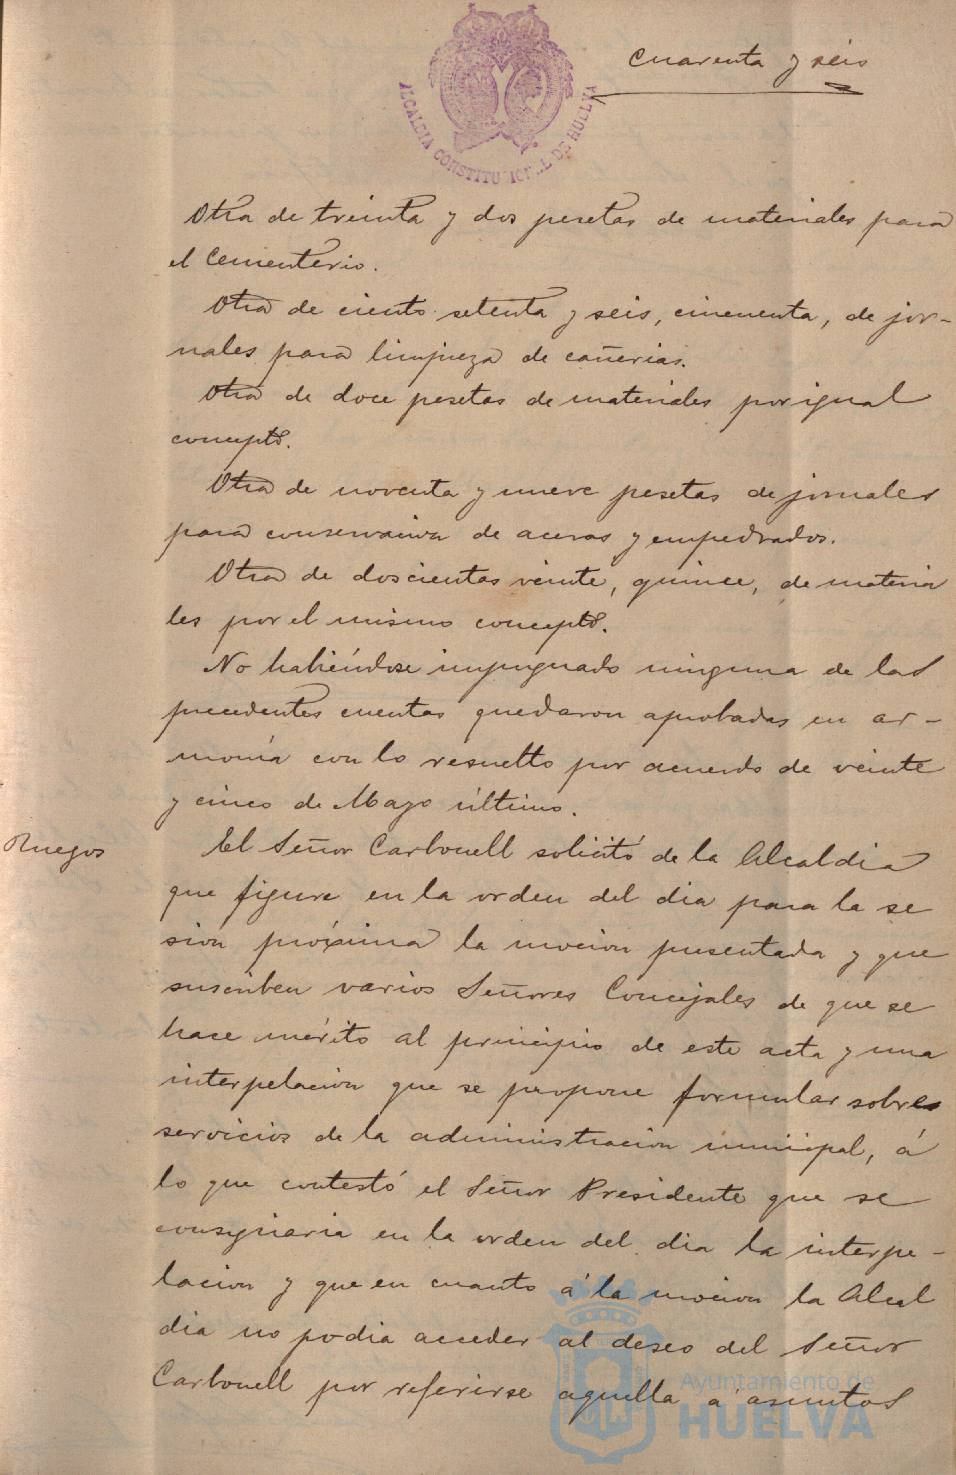 cuarenta y seis
ALCALDIA CONSTITUCIONAL DE HUELVA
Otra de treinta y dos pesetas de materiales para
el Cementerio.
Otra de ciento setenta y seis, cincuenta, de jor-
nales para limpieza de cañerias.
Otra de doce pesetas de materiales por igual
concepto.
Otra de noventa y nueve pesetas de jornales
para conservacion de aceras y empedrados.
Otra de doscientas veinte, quince, de materia
les por el mismo concepto.
No habiéndose impugnado ninguna de las
precedentes cuentas quedaron aprobadas en ar-
monía con lo resuelto por acuerdo de veinte
y cinco de Mayo último.
Ruegos
El Señor Carbonell solicitó de la Alcaldia
que figure en la orden del dia para la se
sion próxima la mocion presentada y que
suscriben varios Señores Concejales de que se
hace mérito al principio de este acta y una
interpelacion que se propone formular sobre
servicios de la administracion municipal, á
lo que contestó el Señor Presidente que se
consignaria en la orden del dia la interpe-
lacion y que en cuanto á la mocion la Alcal
dia no podia acceder al deseo del Señor
Carbonell por referirse aquella á asuntos
Ayuntamiento de
HUELVA